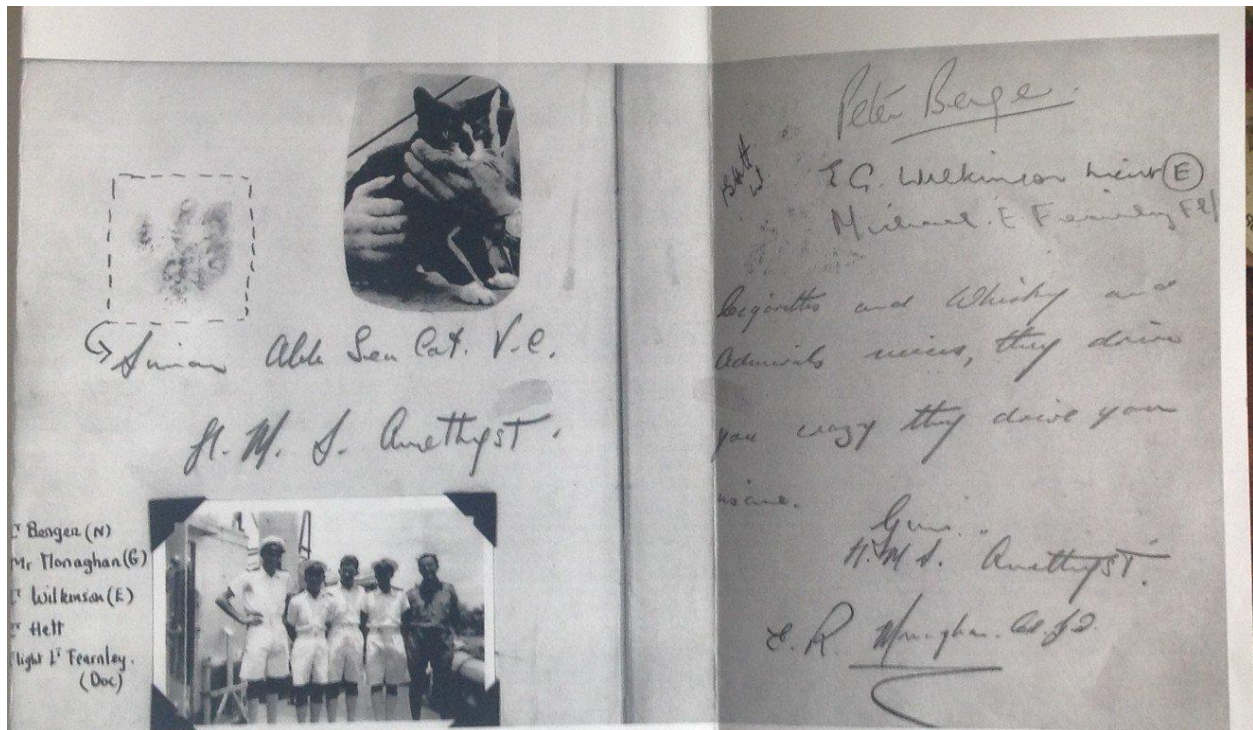 Simon Able Sea Cat. V.C.
H. M. S. Amethyst.
Lt Berger (N)
Mr Monaghan (G)
Lt Wilkinson (E)
Lt Hett
Flight Lt Fearnley.
(Doc)
Peter Berger.
Hett
E G. Wilkinson Lieut (E)
Michael. E Fearnley Flt/
Cigarettes and Whisky and
Admirals nieces, they drive
you crazy they drive you
insane.
H.M.S. Amethyst.
E. R. Monaghan.